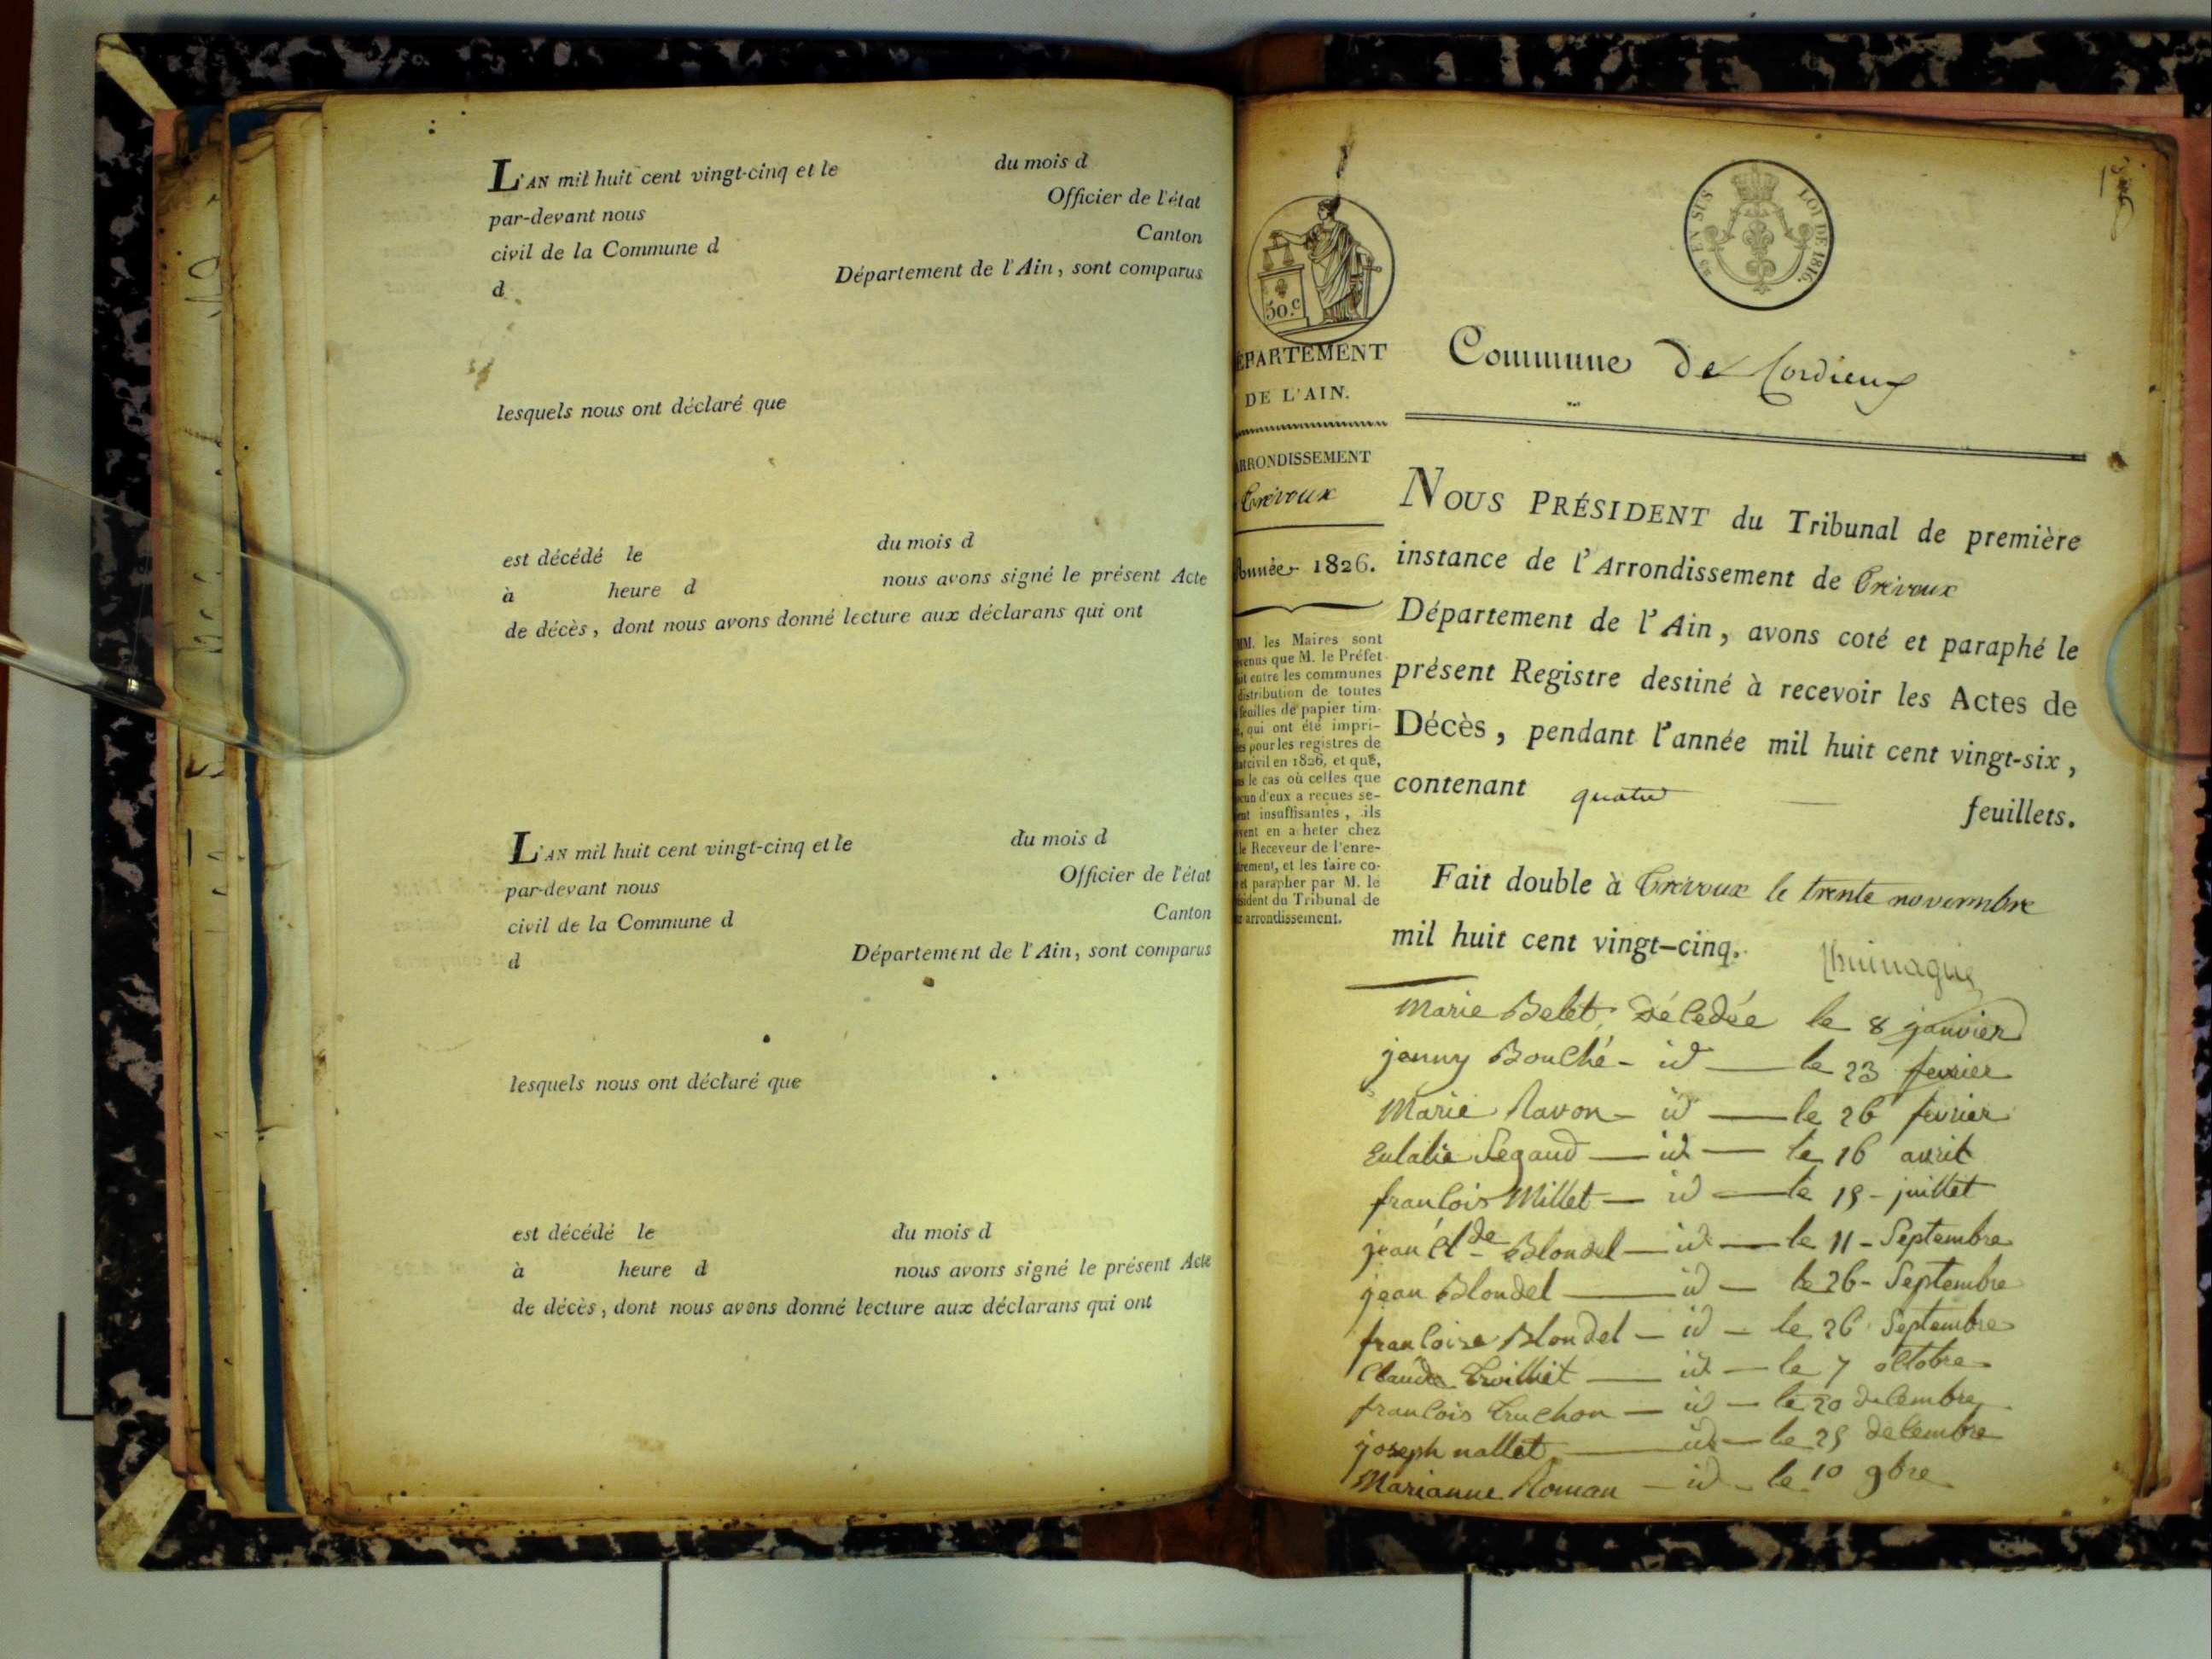 L'AN mil huit cent vingt-cinq et le du mois d
par-devant nous Officier de l'état
civil de la Commune d Canton
d Département de l'Ain, sont comparus
lesquels nous ont déclaré que
est décédé le du mois d
à heure d nous avons signé le présent Acte
de décès, dont nous avons donné lecture aux déclarans qui ont
L'AN mil huit cent vingt-cinq et le du mois d
par-devant nous Officier de l'état
civil de la Commune d Canton
d Département de l'Ain, sont comparus
lesquels nous ont déclaré que
est décédé le du mois d
à heure d nous avons signé le présent Acte
de décès, dont nous avons donné lecture aux déclarans qui ont
EN SUS LOI DE 1816.
50.c
ÉPARTEMENT
DE L'AIN.
ARRONDISSEMENT
Trévoux
Année 1826.
MM. les Maires sont
venus que M. le Préfet
it entre les communes
distribution de toutes
feuilles de papier tim-
, qui ont été impri-
es pour les registres de
at civil en 1826, et que,
s le cas où celles que
cun d'eux a reçues se-
nt insuffisantes, ils
vent en acheter chez
le Receveur de l'enre-
trement, et les faire co-
et parapher par M. le
sident du Tribunal de
r arrondissement.
Commune de Cordieux
NOUS PRÉSIDENT du Tribunal de première
instance de l'Arrondissement de Trévoux
Département de l'Ain, avons coté et paraphé le
présent Registre destiné à recevoir les Actes de
Décès, pendant l'année mil huit cent vingt-six,
contenant quatre feuillets.
Fait double à Trévoux le trente novembre
mil huit cent vingt-cinq.
Marie Belet, décedée le 8 janvier
jenny Bouché - id — le 23 fevrier
Marie Ravon - id — le 26 fevrier
Eulalie Segaud — id — le 16 avril
francois Millet — id — le 19 - juillet
jean Cl.de Blondel — id — le 11 - Septembre
jean Blondel — id — le 26 - Septembre
francoise Blondel — id — le 26 Septembre
Claude Trvilliet — id — le 7 octobre
francois Cruchon — id — le 20 decembre
joseph nallet — id — le 29 decembre
Marianne Roman — id - le 10 9bre